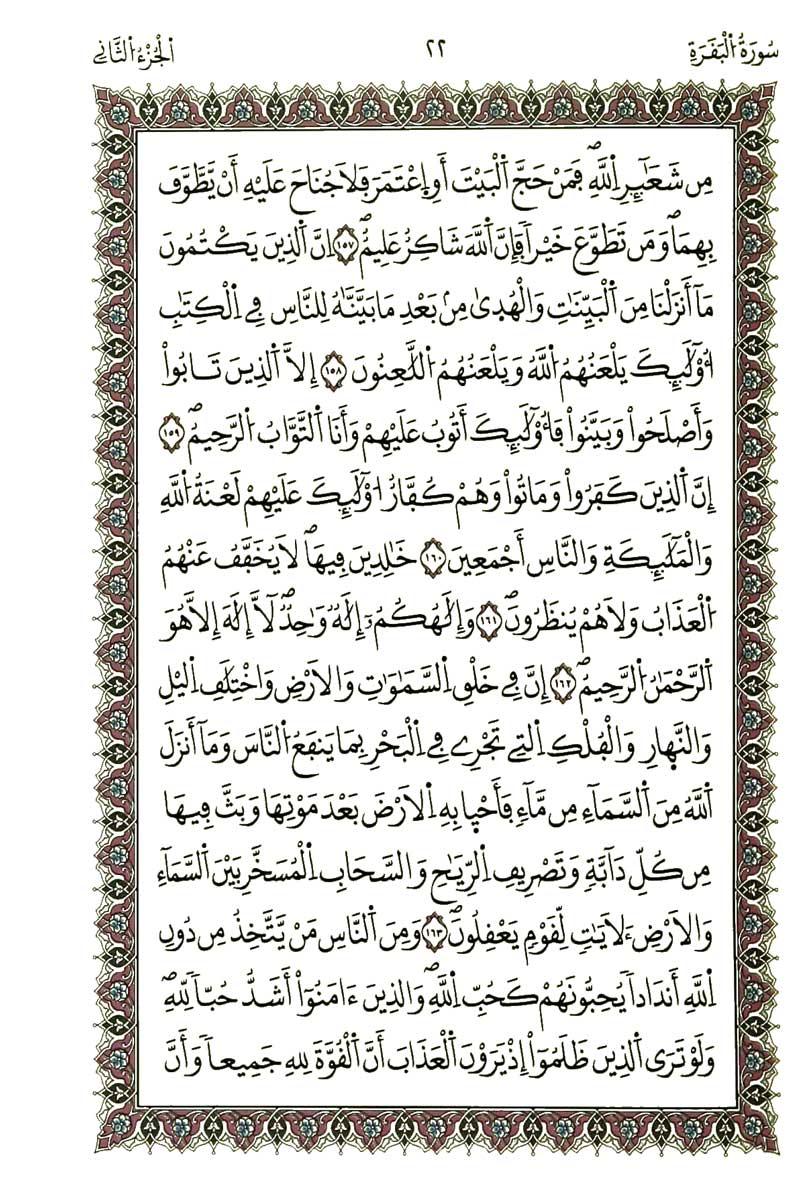 سُورَةُ اُ۬لْبَقَرَةِ ٢٢ اَ۬لْجُزْءُ اُ۬لثَّانِے
مِن شَعَآئِرِ اِ۬للَّهِۖ فَمَنْ حَجَّ اَ۬لْبَيْتَ أَوِ اِ۪عْتَمَرَ فَلَا جُنَاحَ عَلَيْهِ أَنْ يَّطَّوَّفَ
بِهِمَاۖ وَمَن تَطَوَّعَ خَيْراٗ فَإِنَّ اَ۬للَّهَ شَاكِرٌ عَلِيمٌۖ ١٥٧ إِنَّ اَ۬لذِينَ يَكْتُمُونَ
مَآ أَنزَلْنَا مِنَ اَ۬لْبَيِّنَٰتِ وَالْهُد۪ىٰ مِنۢ بَعْدِ مَا بَيَّنَّٰهُ لِلنَّاسِ فِے اِ۬لْكِتَٰبِ
أُوْلَٰٓئِكَ يَلْعَنُهُمُ اُ۬للَّهُ وَيَلْعَنُهُمُ اُ۬للَّٰعِنُونَ ١٥٨ إِلَّا اَ۬لذِينَ تَابُواْ
وَأَصْلَحُواْ وَبَيَّنُواْ فَأُوْلَٰٓئِكَ أَتُوبُ عَلَيْهِمْ وَأَنَا اَ۬لتَّوَّابُ اُ۬لرَّحِيمُۖ ١٥٩
إِنَّ اَ۬لذِينَ كَفَرُواْ وَمَاتُواْ وَهُمْ كُفَّارٌ أُوْلَٰٓئِكَ عَلَيْهِمْ لَعْنَةُ اُ۬للَّهِ
وَالْمَلَٰٓئِكَةِ وَالنَّاسِ أَجْمَعِينَ ١٦٠ خَٰلِدِينَ فِيهَاۖ لَا يُخَفَّفُ عَنْهُمُ
اُ۬لْعَذَابُ وَلَا هُمْ يُنظَرُونَۖ ١٦١ وَإِلَٰهُكُمُۥٓ إِلَٰهٌ وَٰحِدٌۖ لَّآ إِلَٰهَ إِلَّا هُوَ
اَ۬لرَّحْمَٰنُ اُ۬لرَّحِيمُۖ ١٦٢ إِنَّ فِے خَلْقِ اِ۬لسَّمَٰوَٰتِ وَالَارْضِ وَاخْتِلَٰفِ اِ۬ليْلِ
وَالنَّه۪ارِ وَالْفُلْكِ اِ۬لتِے تَجْرِے فِے اِ۬لْبَحْرِ بِمَا يَنفَعُ اُ۬لنَّاسَ وَمَآ أَنزَلَ
اَ۬للَّهُ مِنَ اَ۬لسَّمَآءِ مِن مَّآءٖ فَأَحْي۪ا بِهِ اِ۬لَارْضَ بَعْدَ مَوْتِهَا وَبَثَّ فِيهَا
مِن كُلِّ دَآبَّةٖ وَتَصْرِيفِ اِ۬لرِّيَٰحِ وَالسَّحَابِ اِ۬لْمُسَخَّرِ بَيْنَ اَ۬لسَّمَآءِ
وَالَارْضِ ءَلَايَٰتٖ لِّقَوْمٖ يَعْقِلُونَۖ ١٦٣ وَمِنَ اَ۬لنَّاسِ مَنْ يَّتَّخِذُ مِن دُونِ
اِ۬للَّهِ أَندَاداٗ يُحِبُّونَهُمْ كَحُبِّ اِ۬للَّهِۖ وَالذِينَ ءَامَنُوٓاْ أَشَدُّ حُبّاٗ لِّلهِۖ
وَلَوْ تَرَى اَ۬لذِينَ ظَلَمُوٓاْ إِذْ يَرَوْنَ اَ۬لْعَذَابَ أَنَّ اَ۬لْقُوَّةَ لِلهِ جَمِيعاٗ وَأَنَّ